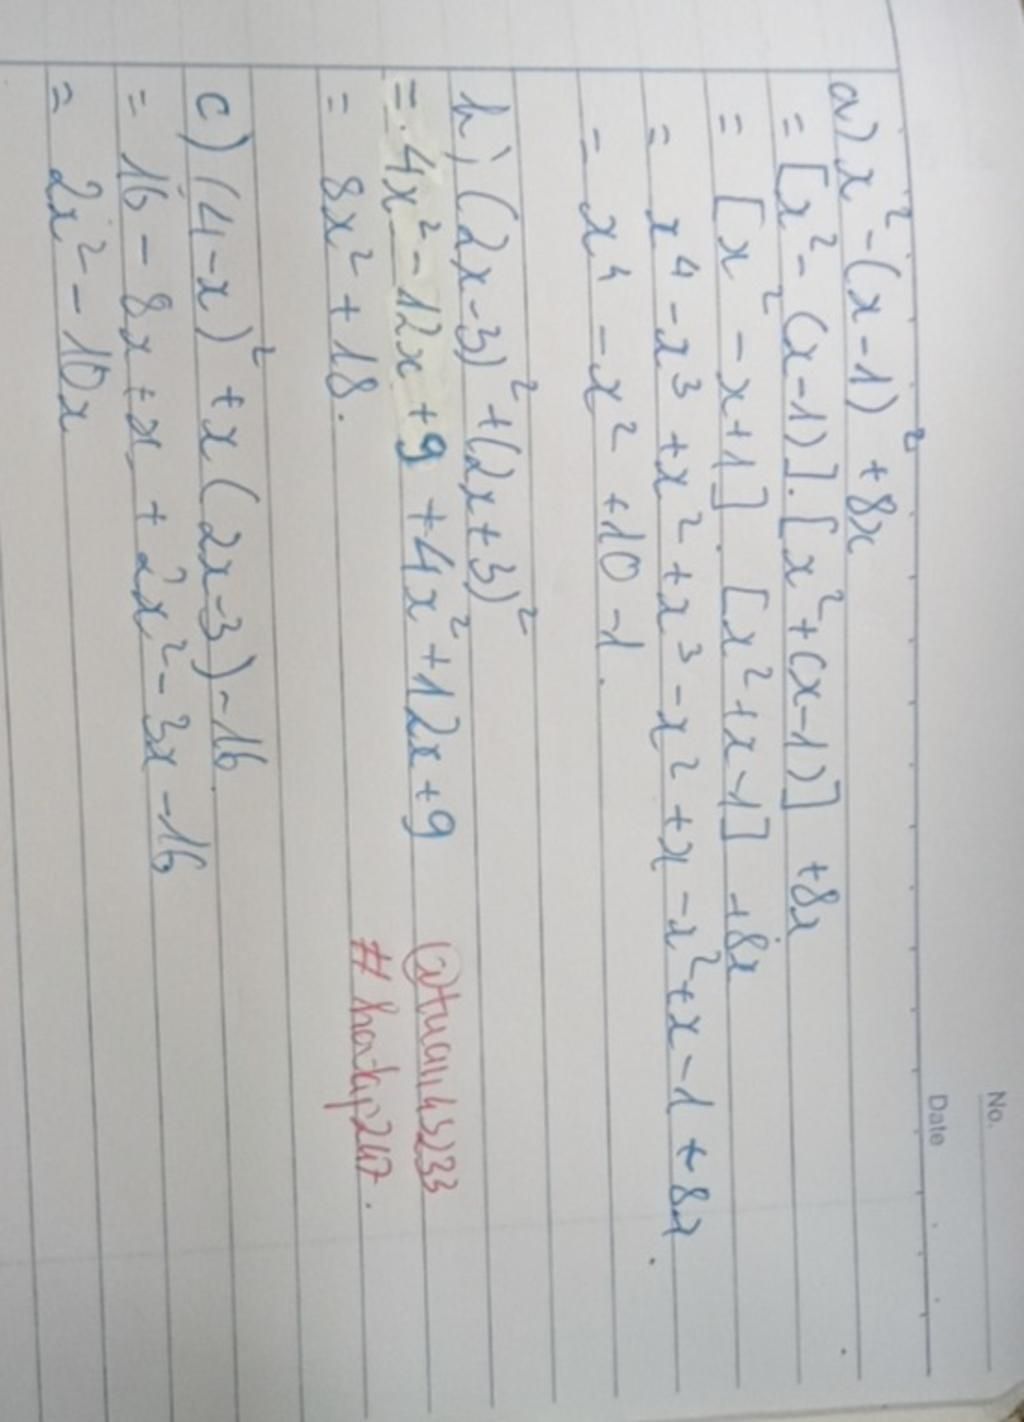 No.
Date
a) x² - (x - 1)² + 8x
= [x² - (x - 1)] . [x² + (x - 1)] + 8x
= [x² - x + 1] . [x² + x - 1] + 8x
= x⁴ - x³ + x² + x³ - x² + x - x² + x - 1 + 8x
= x⁴ - x² + 10 - 1.
b) (2x - 3)² + (2x + 3)²
= 4x² - 12x + 9 + 4x² + 12x + 9
= 8x² + 18.
c) (4 - x)² + x(2x - 3) - 16
= 16 - 8x + x + 2x² - 3x - 16
= 2x² - 10x